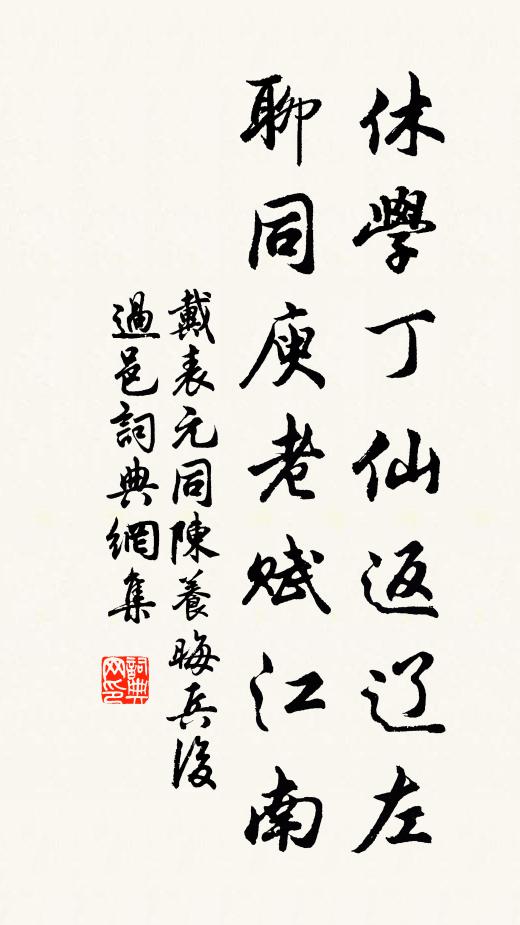 休學丁仙返辽左
聊同庾老赋江南
戴表元同陳養晦兵後
過邑詞典網集
詞典網印